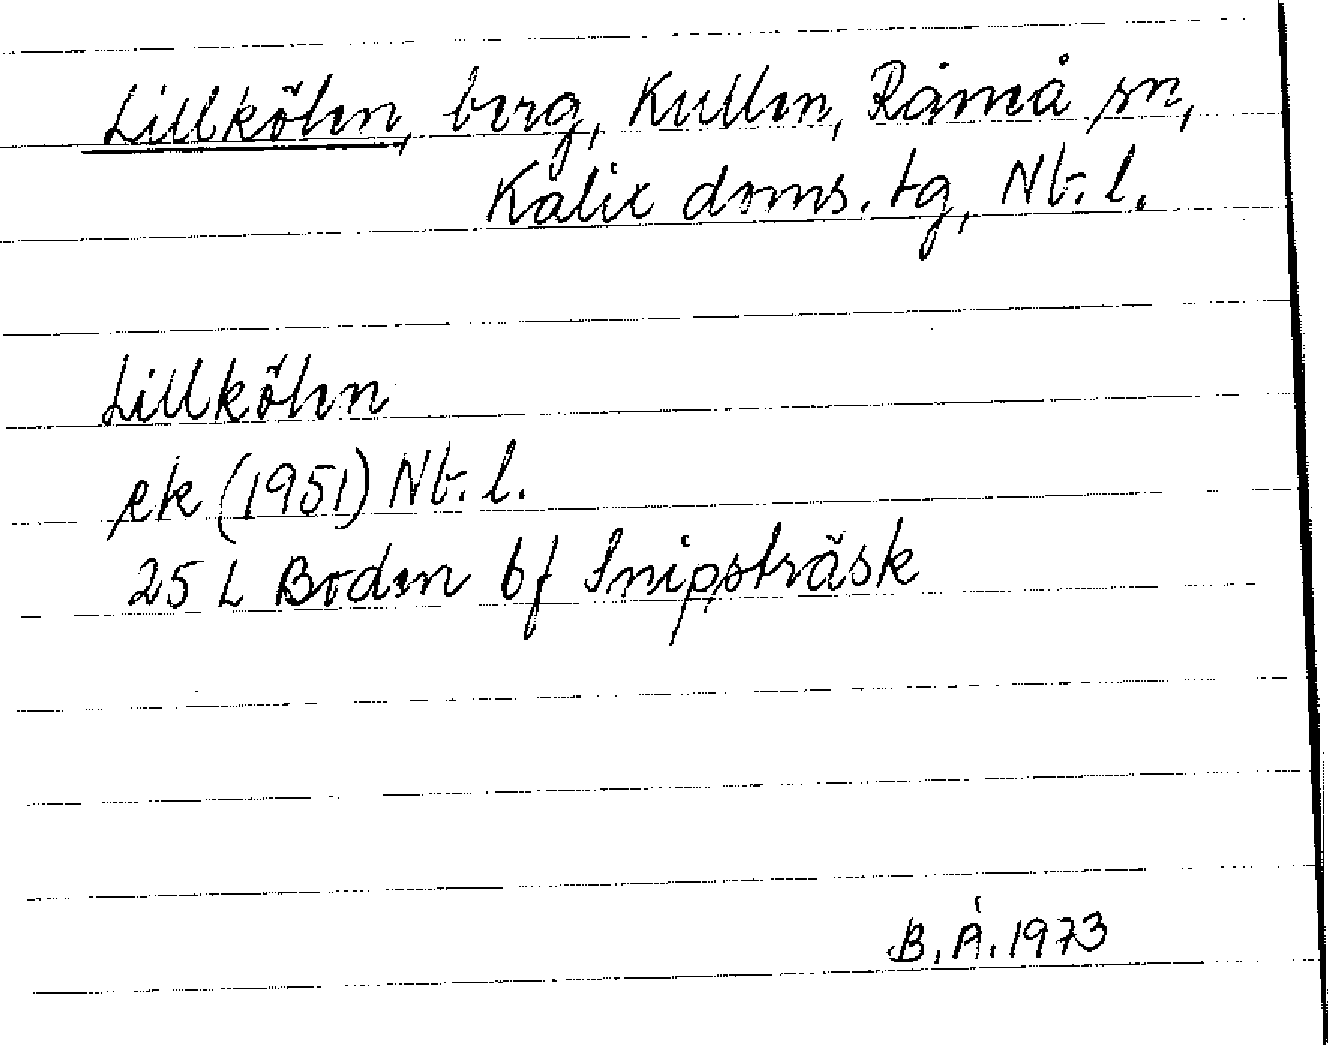 Lillkölen, berg, Kullen, Råneå sn,
Kalix doms. tg, Nb. l.
Lillkölen
ek (1951) Nb. l.
25 L Boden 6f Snipsträsk
B. Å. 1973